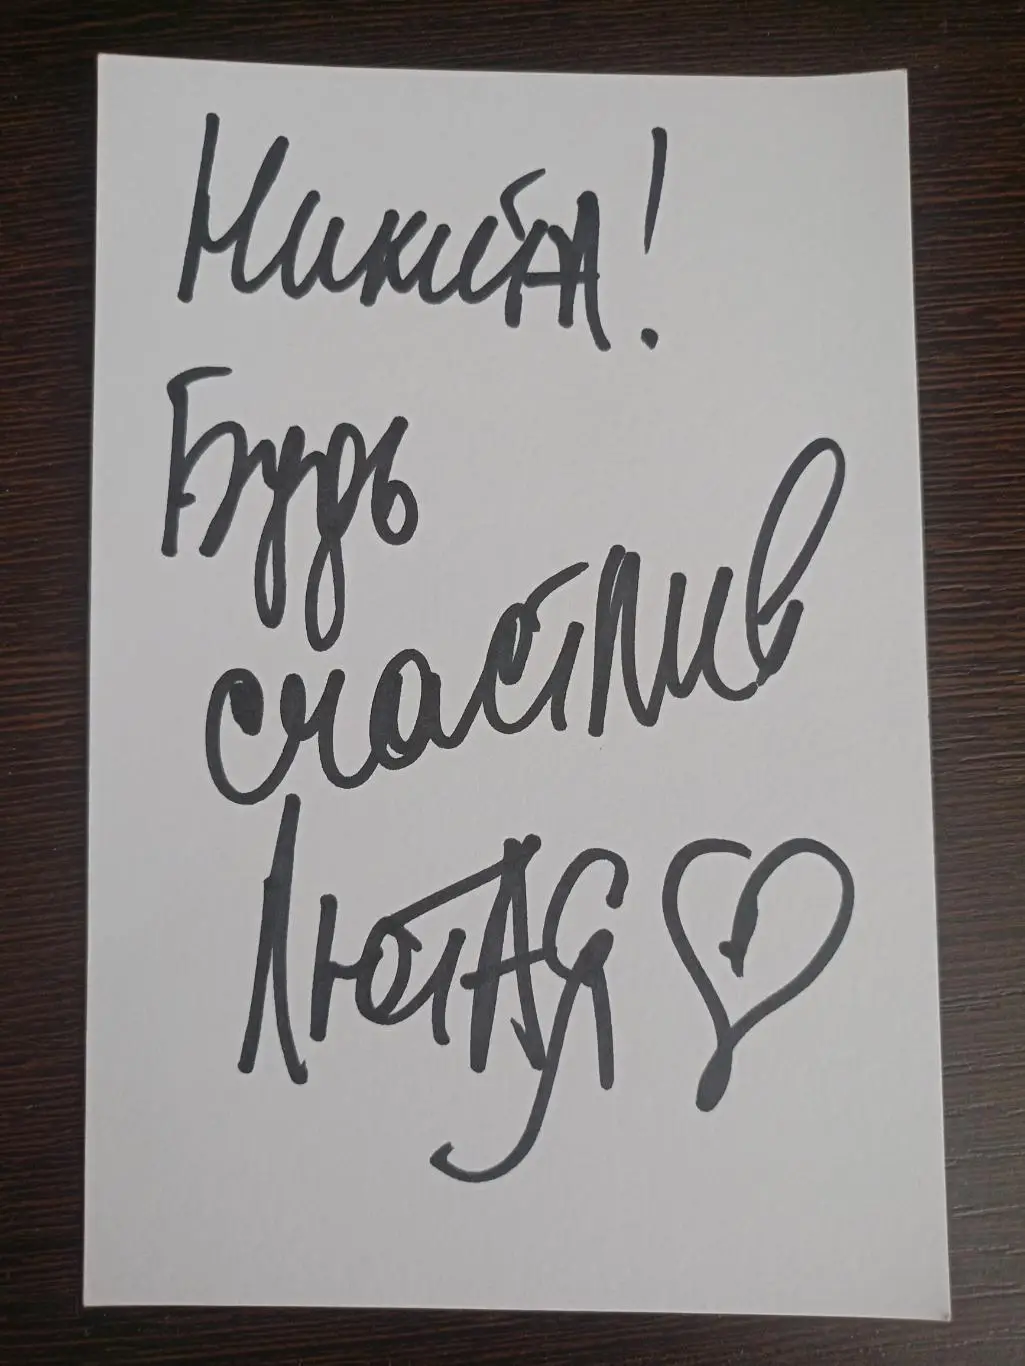 Никита!
Будь
счастлив
Лютая